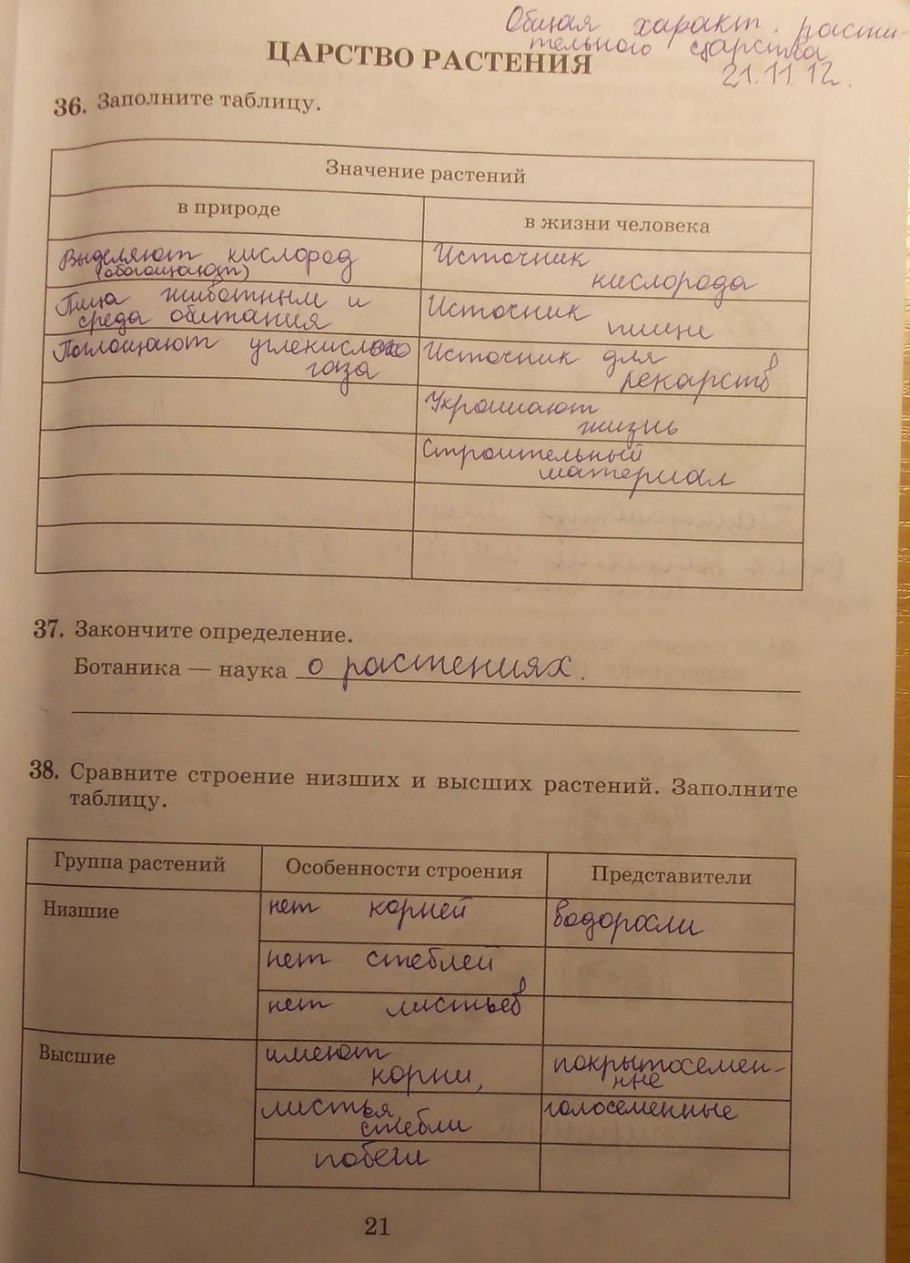 Общая характ. расти-
тельного царства
21.11.12.
ЦАРСТВО РАСТЕНИЯ
36. Заполните таблицу.
Значение растений
в природе
в жизни человека
Выделяют кислород
(обогощают)
Источник
кислорода
Пища животным и
среда обитания
Источник
пищи
Поглощают углекислого
газа
Источник для
лекарств
Украшают
жизнь
Строительный
материал
37. Закончите определение.
Ботаника — наука о растениях.
38. Сравните строение низших и высших растений. Заполните
таблицу.
Группа растений
Особенности строения
Представители
Низшие
нет корней
водоросли
нет стеблей
нет листьев
Высшие
имеют
корни,
покрытосемен-
ные
листья
стебли
голосеменные
побеги
21